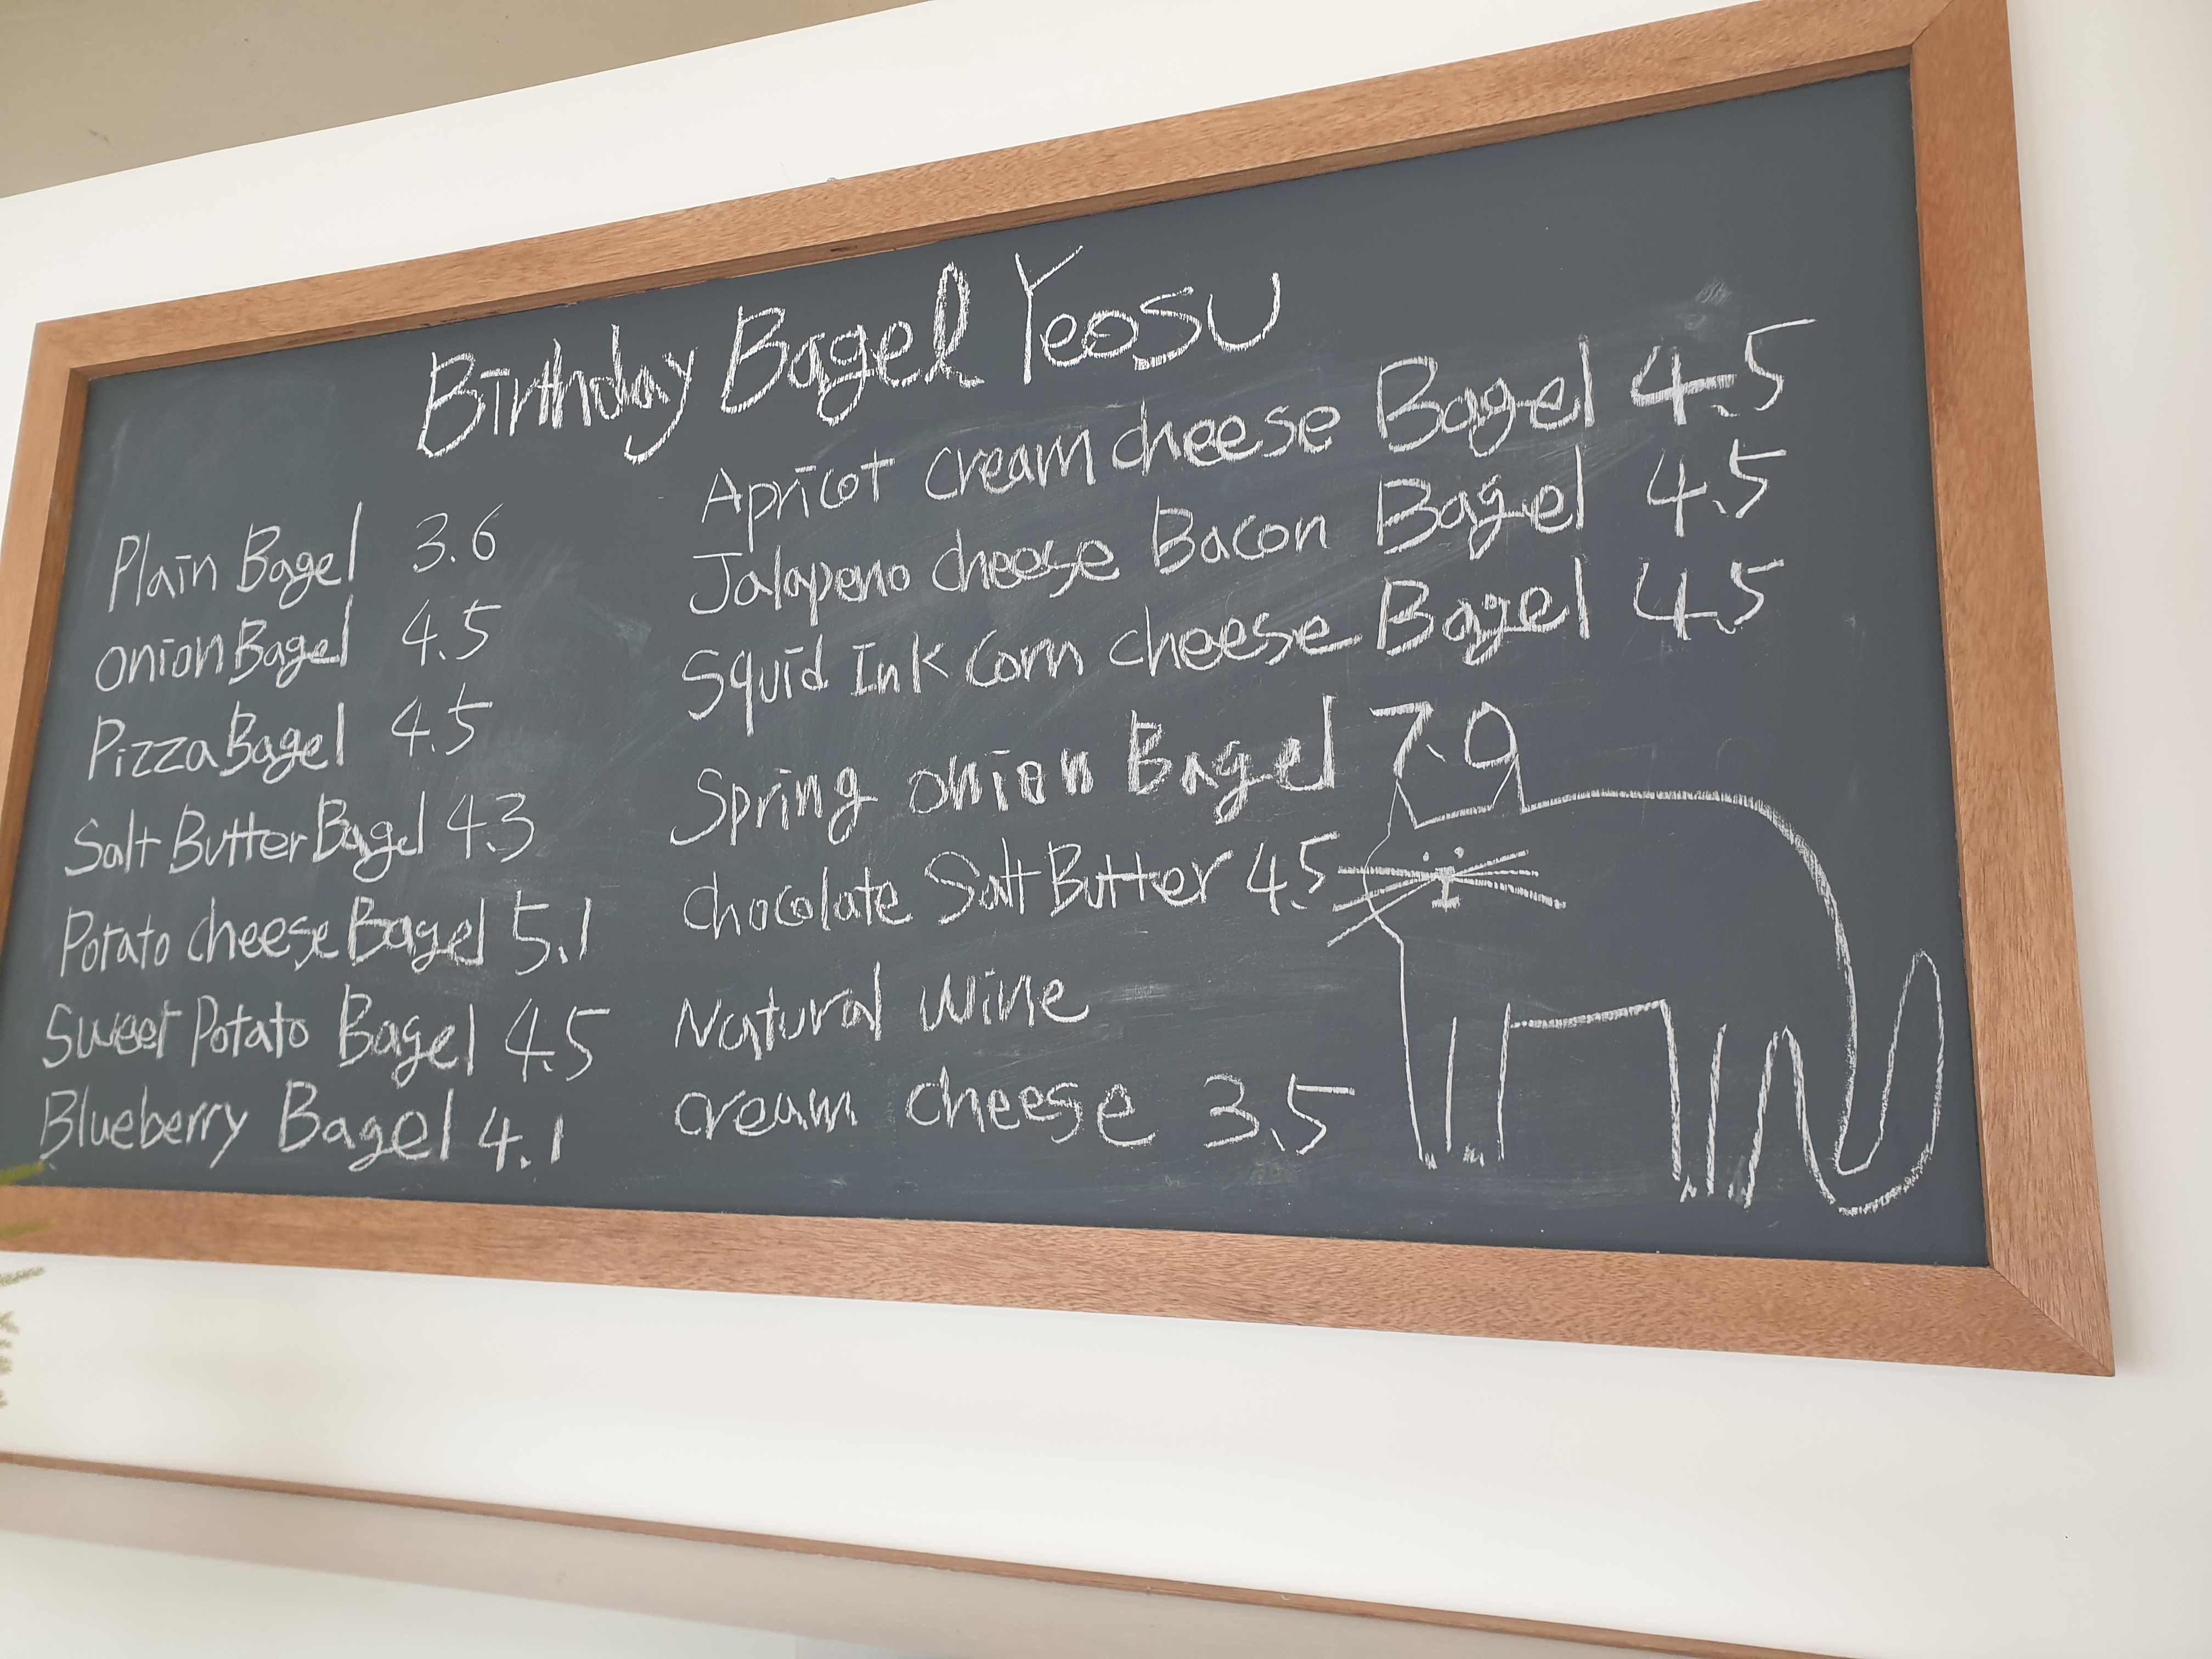 Birthday Bagel Yeosu
Plain Bagel 3.6
onion Bagel 4.5
Pizza Bagel 4.5
Salt Butter Bagel 4.3
Potato cheese Bagel 5.1
Sweet Potato Bagel 4.5
Blueberry Bagel 4.1
Apricot cream cheese Bagel 4.5
Jalapeno cheese Bacon Bagel 4.5
Squid Ink Corn cheese Bagel 4.5
Spring onion Bagel 7.0
chocolate Salt Butter 4.5
Natural wine
cream cheese 3.5